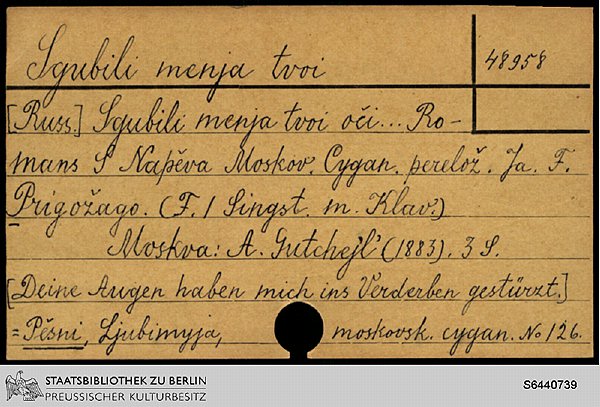 Sgubili menja tvoi
48958
[Russ.] Sgubili menja tvoi oči... Ro-
mans S Napěva Moskov. Cygan. perelož. Ja. F.
Prigožago. (F. 1 Singst. m. Klav.)
Moskva: A. Gutchejl' (1883). 3 S.
[Deine Augen haben mich ins Verderben gestürzt.]
= Pěsni, Ljubimyja, moskovsk. cygan. No 126.
STAATSBIBLIOTHEK ZU BERLIN
PREUSSISCHER KULTURBESITZ
S6440739